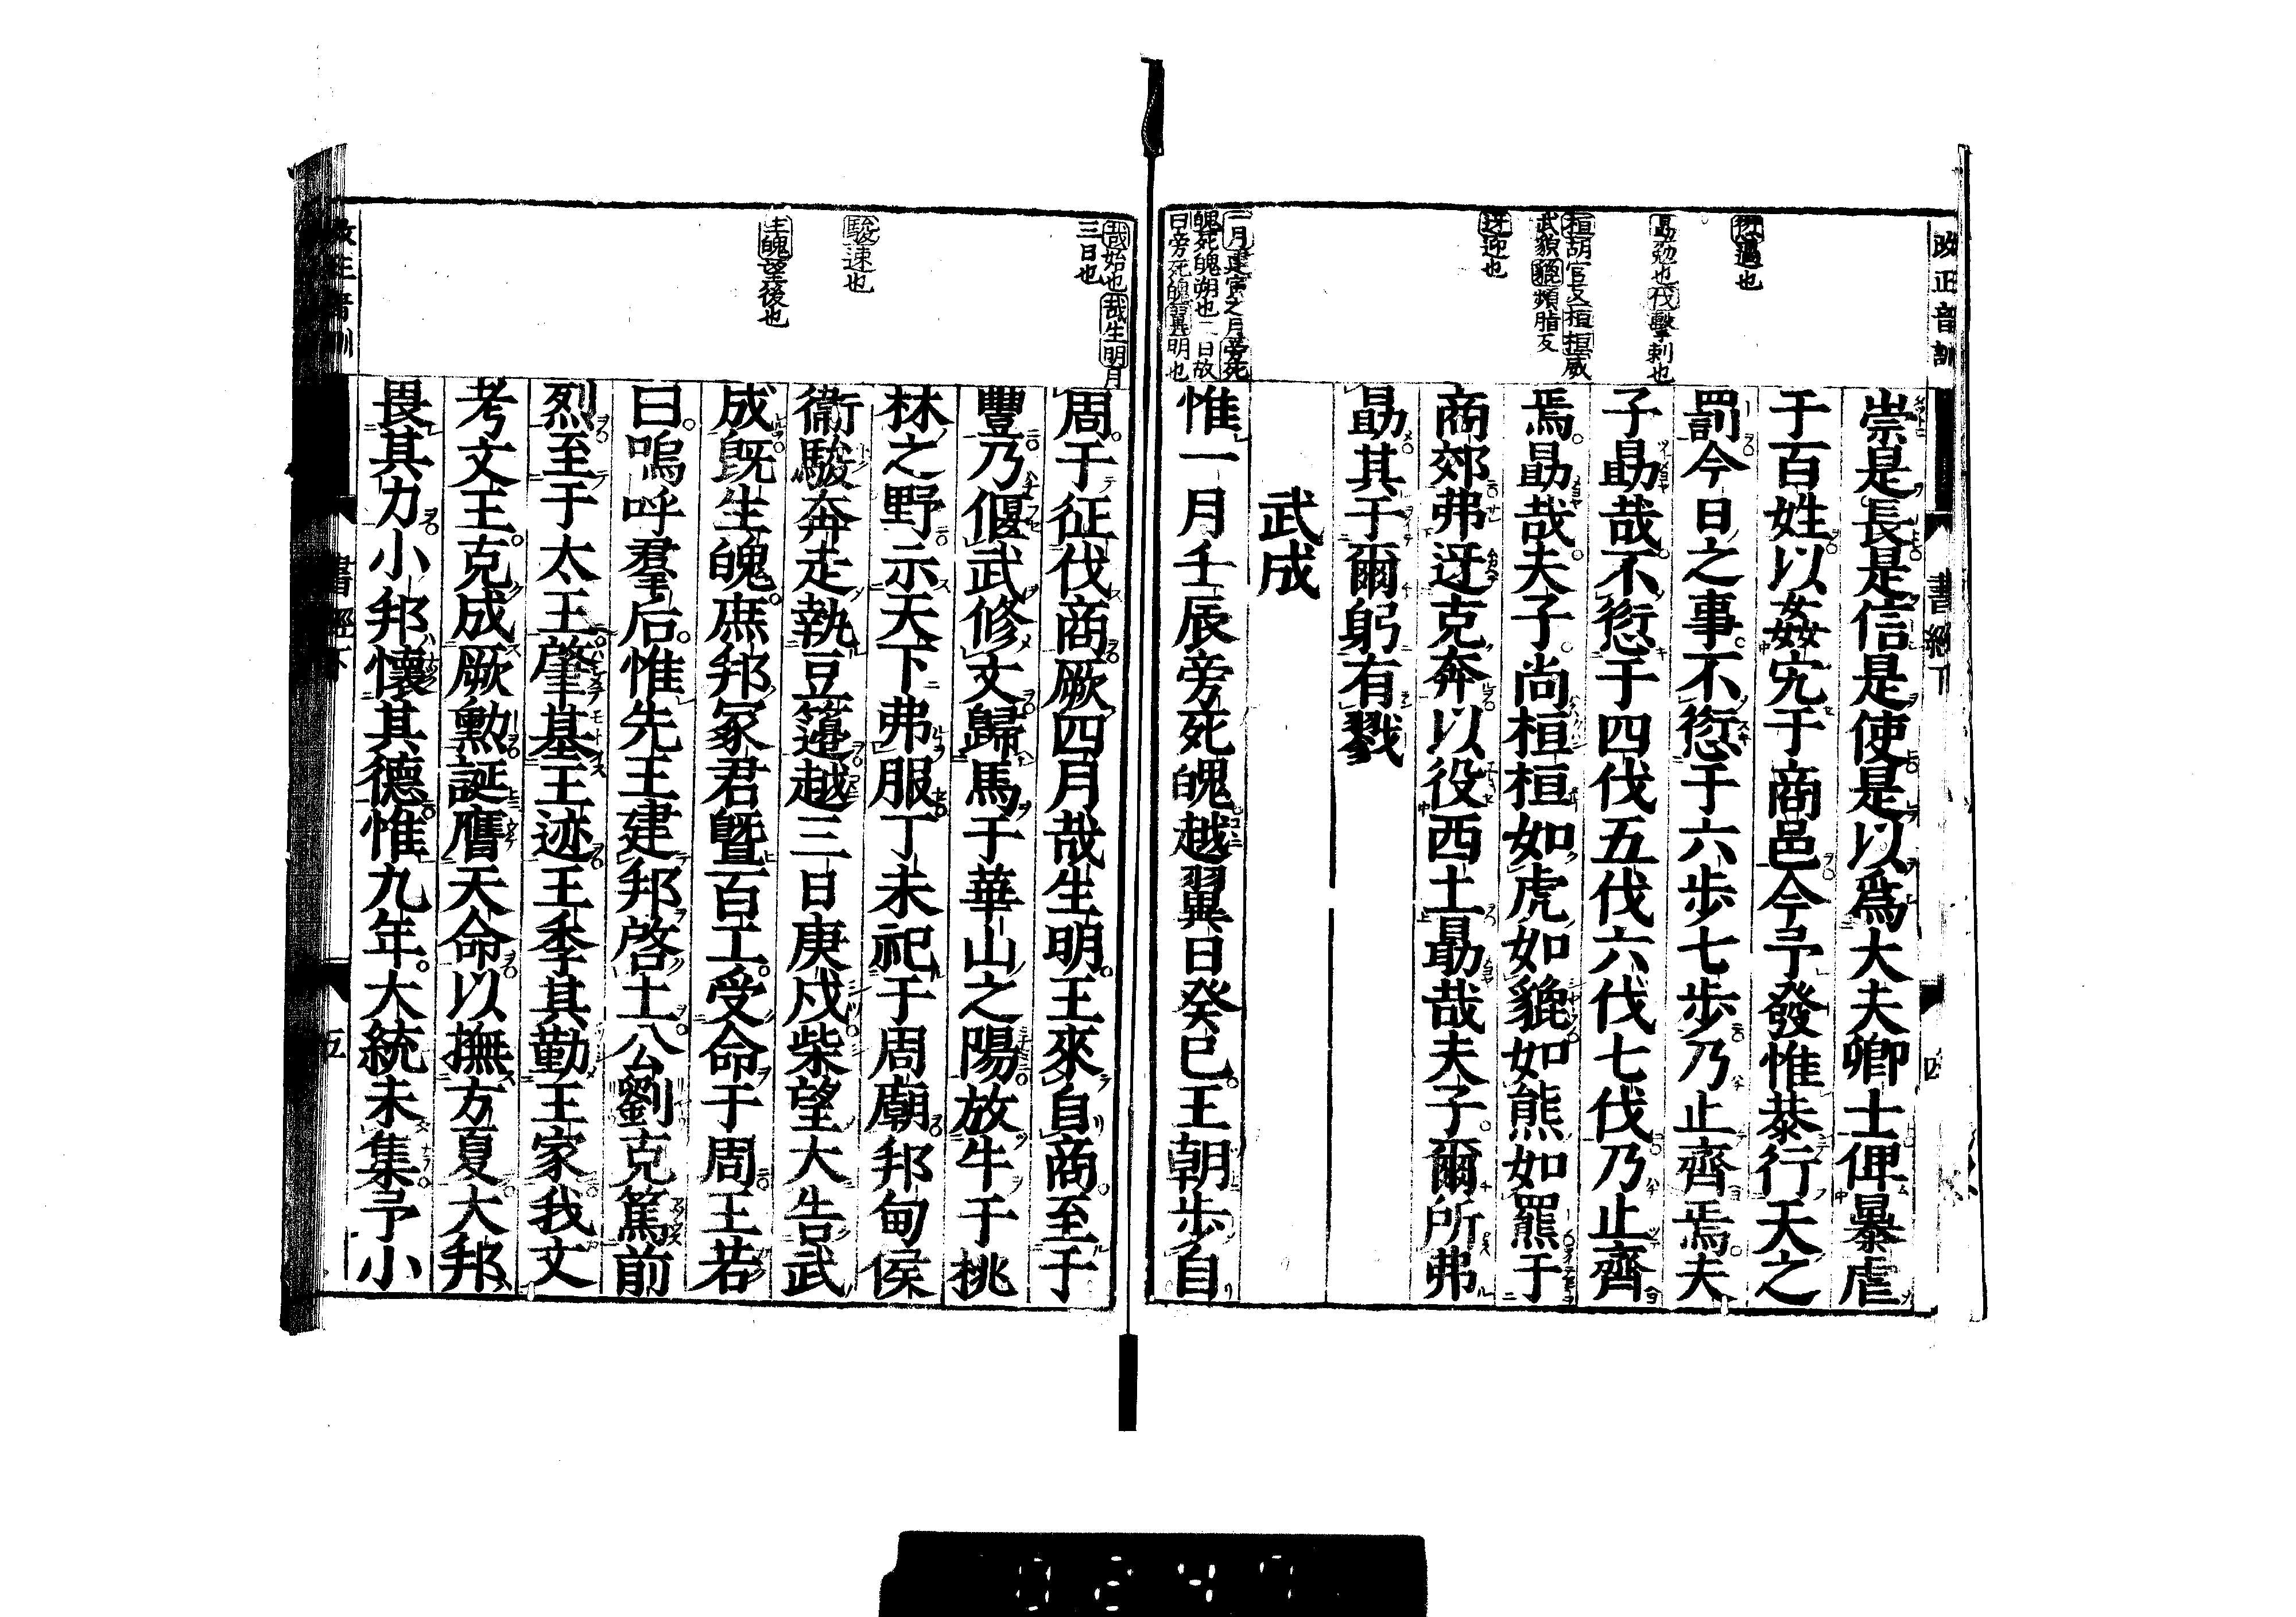 改正音訓
書經下
四
愆過也
勗勉也伐擊刺也
桓胡官反桓桓威
武貌貔頻脂反
迓迎也
一月建寅之月旁死
魄死魄朔也二日故
曰旁死魄翼明也
崇是長是信是使是以爲大夫卿士俾暴虐
于百姓以姦宄于商邑今予發惟恭行天之
罰今日之事不愆于六步七步乃止齊焉夫
子勗哉不愆于四伐五伐六伐七伐乃止齊
焉勗哉夫子尚桓桓如虎如貔如熊如羆于
商郊弗迓克奔以役西土勗哉夫子爾所弗
勗其于爾躬有戮
武成
惟一月壬辰旁死魄越翼日癸巳王朝步自
哉始也哉生明月
三日也
駿速也
生魄望後也
周于征伐商厥四月哉生明王來自商至于
豐乃偃武修文歸馬于華山之陽放牛于桃
林之野示天下弗服丁未祀于周廟邦甸侯
衞駿奔走執豆籩越三日庚戌柴望大告武
成旣生魄庶邦冢君曁百工受命于周王若
曰嗚呼羣后惟先王建邦啓土公劉克篤前
烈至于太王肇基王迹王季其勤王家我文
考文王克成厥勳誕膺天命以撫方夏大邦
畏其力小邦懷其德惟九年大統未集予小
改正音訓
書經下
五
0247